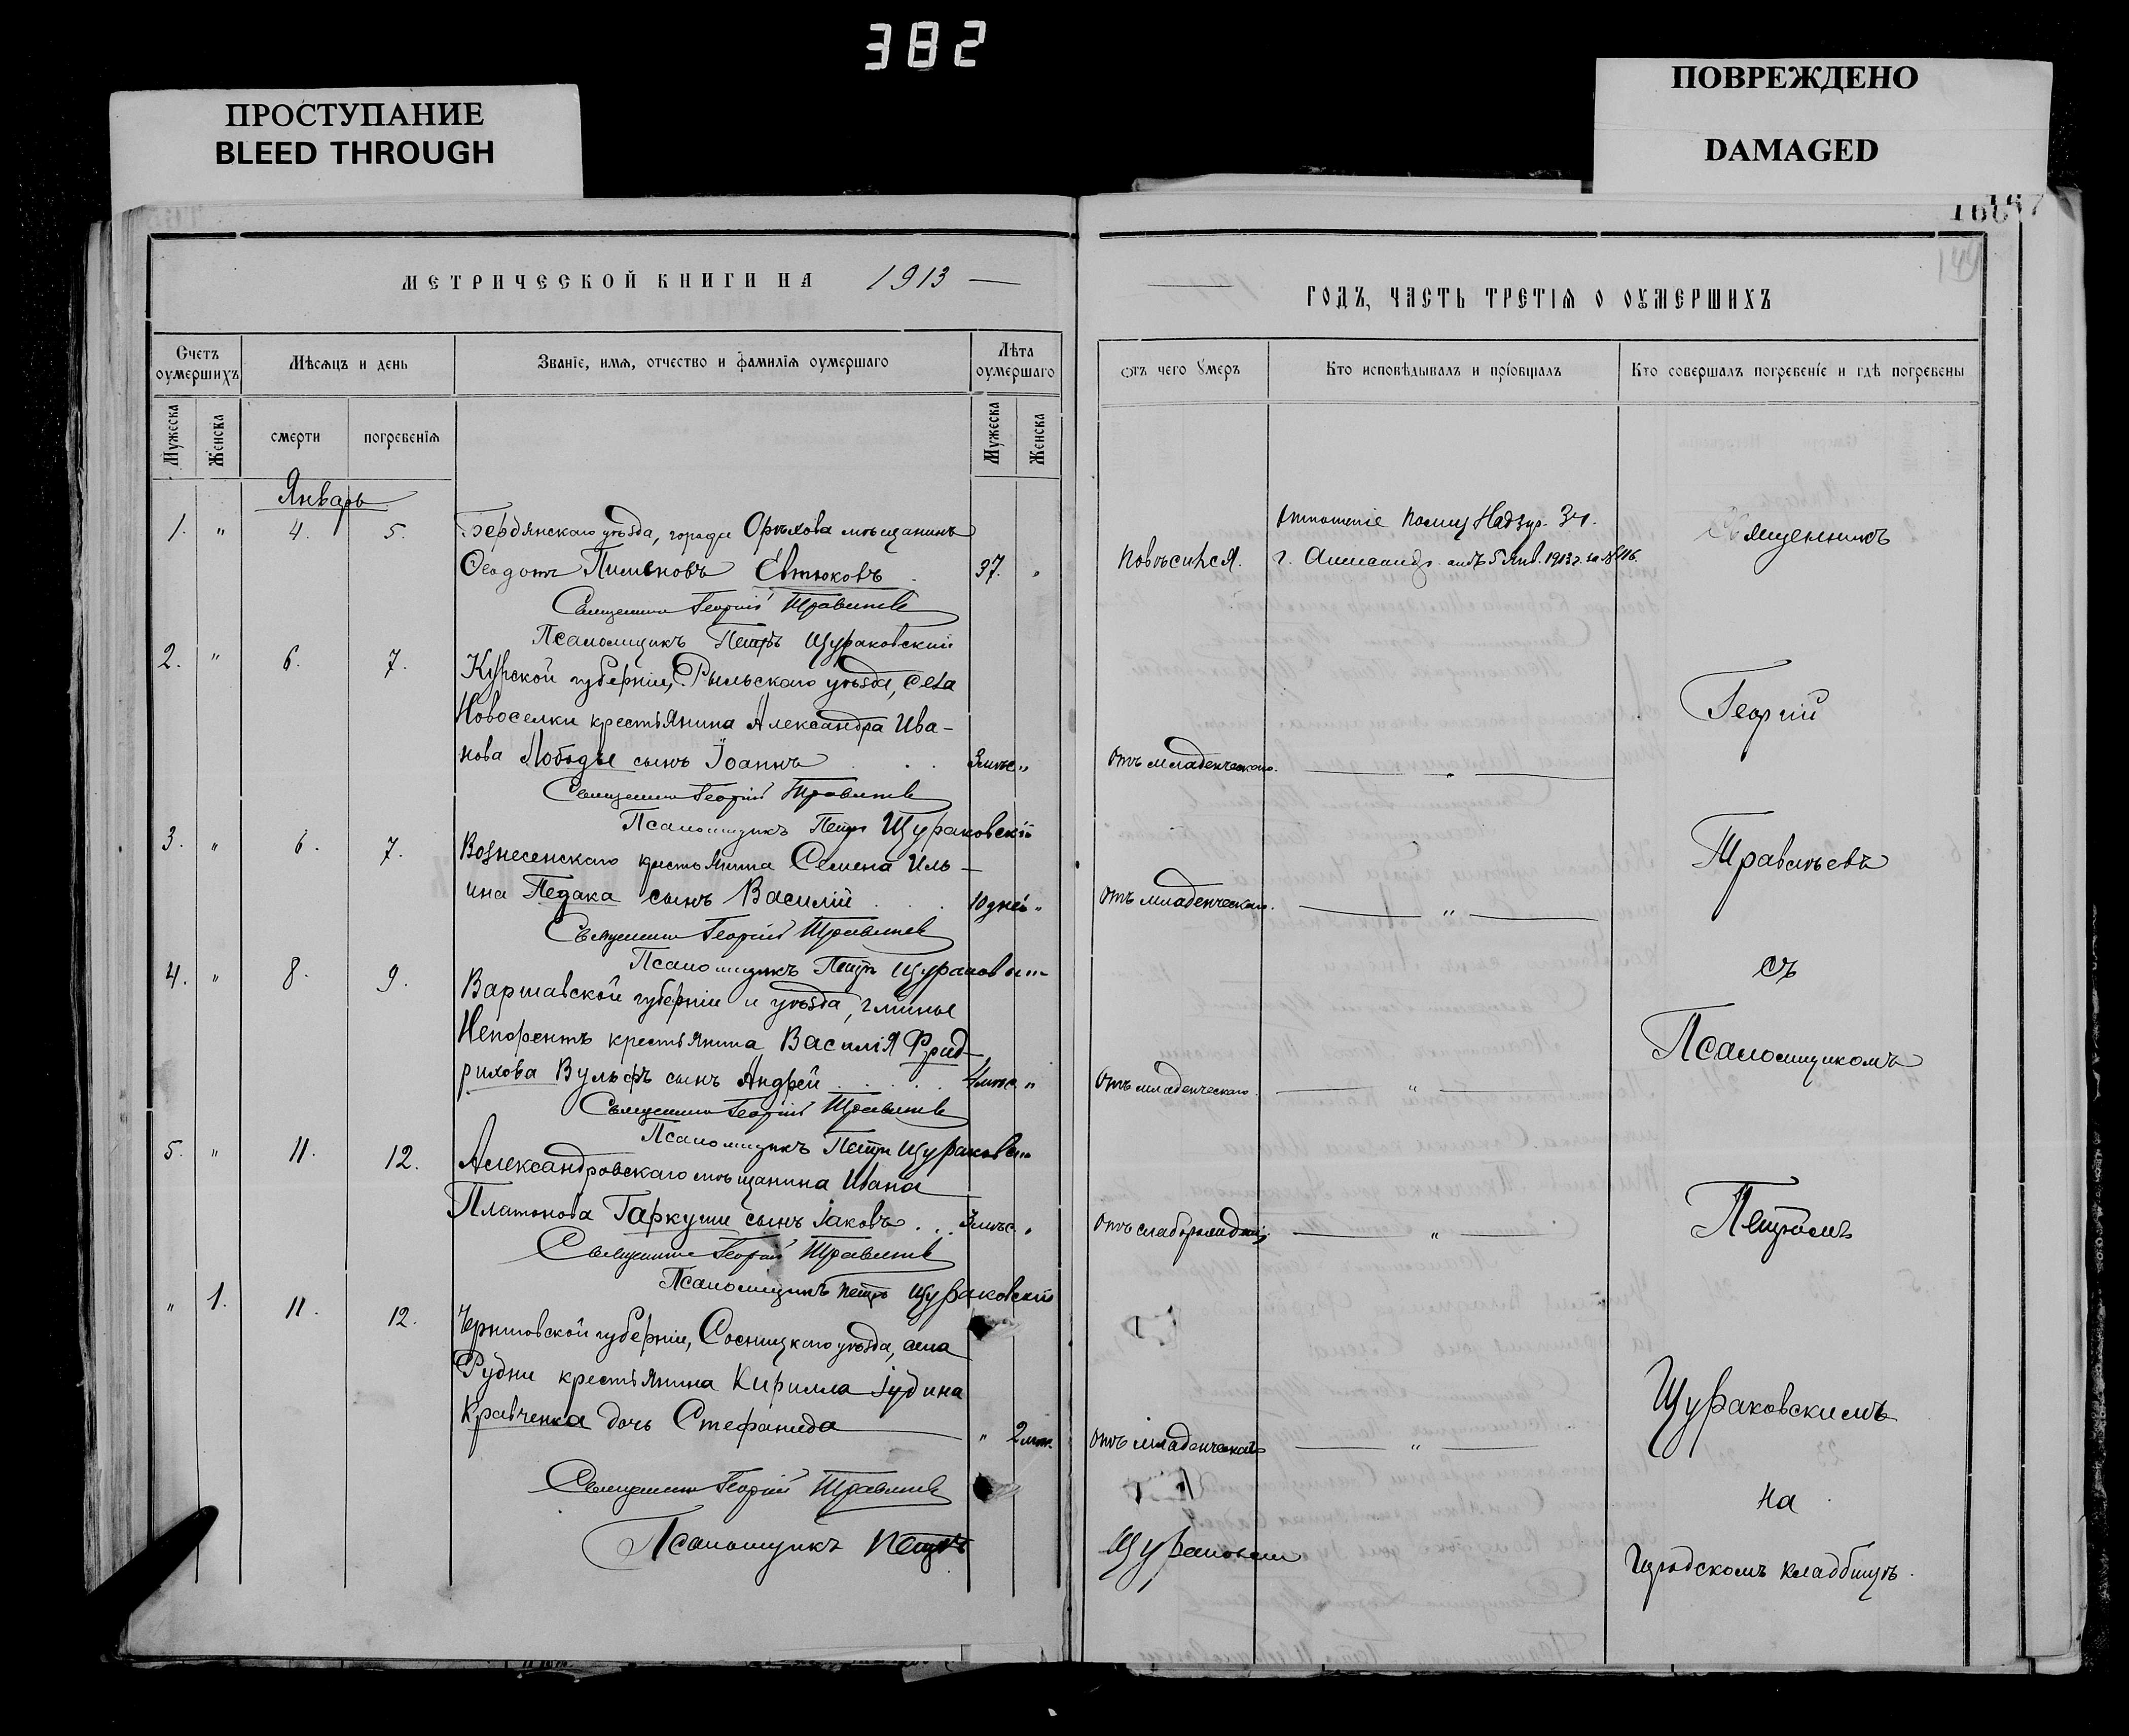 382
ПРОСТУПАНИЕ
BLEED THROUGH
ПОВРЕЖДЕНО
DAMAGED
144
МЕТРИЧЕСКОЙ КНИГИ НА 1913
Счетъ оумершихъ
Мѣсяцъ и день
Званіе, имя, отчество и фамилія оумершаго
Лѣта оумершаго
Мужеска
Женска
смерти
погребенія
Мужеска
Женска
Январь
1. " 4. 5. Бердянскаго уѣзда, города Орѣхова мѣщанинъ
Ѳеодотъ Пименовъ Евтюковъ 37. "
Священникъ Георгій Травлѣевъ
Псаломщикъ Петръ Щураковскій
2. " 6. 7. Курской губерніи, Рыльскаго уѣзда, села
Новоселки крестьянина Александра Ива-
нова Лободы сынъ Іоаннъ 3 мѣс. "
Священникъ Георгій Травлѣевъ
Псаломщикъ Петръ Щураковскій
3. " 6. 7. Вознесенскаго крестьянина Семена Иль-
ина Педака сынъ Василій 10 дней "
Священникъ Георгій Травлѣевъ
Псаломщикъ Петръ Щураковскій
4. " 8. 9. Варшавской губерніи и уѣзда, гмины
Непорентъ крестьянина Василія Фрид-
рихова Вульфъ сынъ Андрей 4 мѣс. "
Священникъ Георгій Травлѣевъ
Псаломщикъ Петръ Щураковскій
5. " 11. 12. Александровскаго мѣщанина Ивана
Платонова Гаркуши сынъ Іаковъ 3 мѣс. "
Священникъ Георгій Травлѣевъ
Псаломщикъ Петръ Щураковскій
" 1. 11. 12. Черниговской губерніи, Сосницкаго уѣзда, села
Рудни крестьянина Кирилла Іудина
Кравченка дочь Стефанида " 2 мѣс.
Священникъ Георгій Травлѣевъ
Псаломщикъ Петръ Щураковскій
ГОДЪ, ЧАСТЬ ТРЕТІЯ О ОУМЕРШИХЪ
отъ чего умеръ
Кто исповѣдывалъ и пріобщалъ
Кто совершалъ погребеніе и гдѣ погребены
Повѣсился.
Отношеніе Полиц. Надзир. 3 ч.
г. Александр. отъ 5 Янв. 1913 г. за №
Отъ младенческаго. "
Отъ младенческаго. "
Отъ младенческаго "
Отъ слаборожденія "
Отъ младенческаго "
Священникъ
Георгій
Травлѣевъ
съ
Псаломщикомъ
Петромъ
Щураковскимъ
на
Городскомъ кладбищѣ.